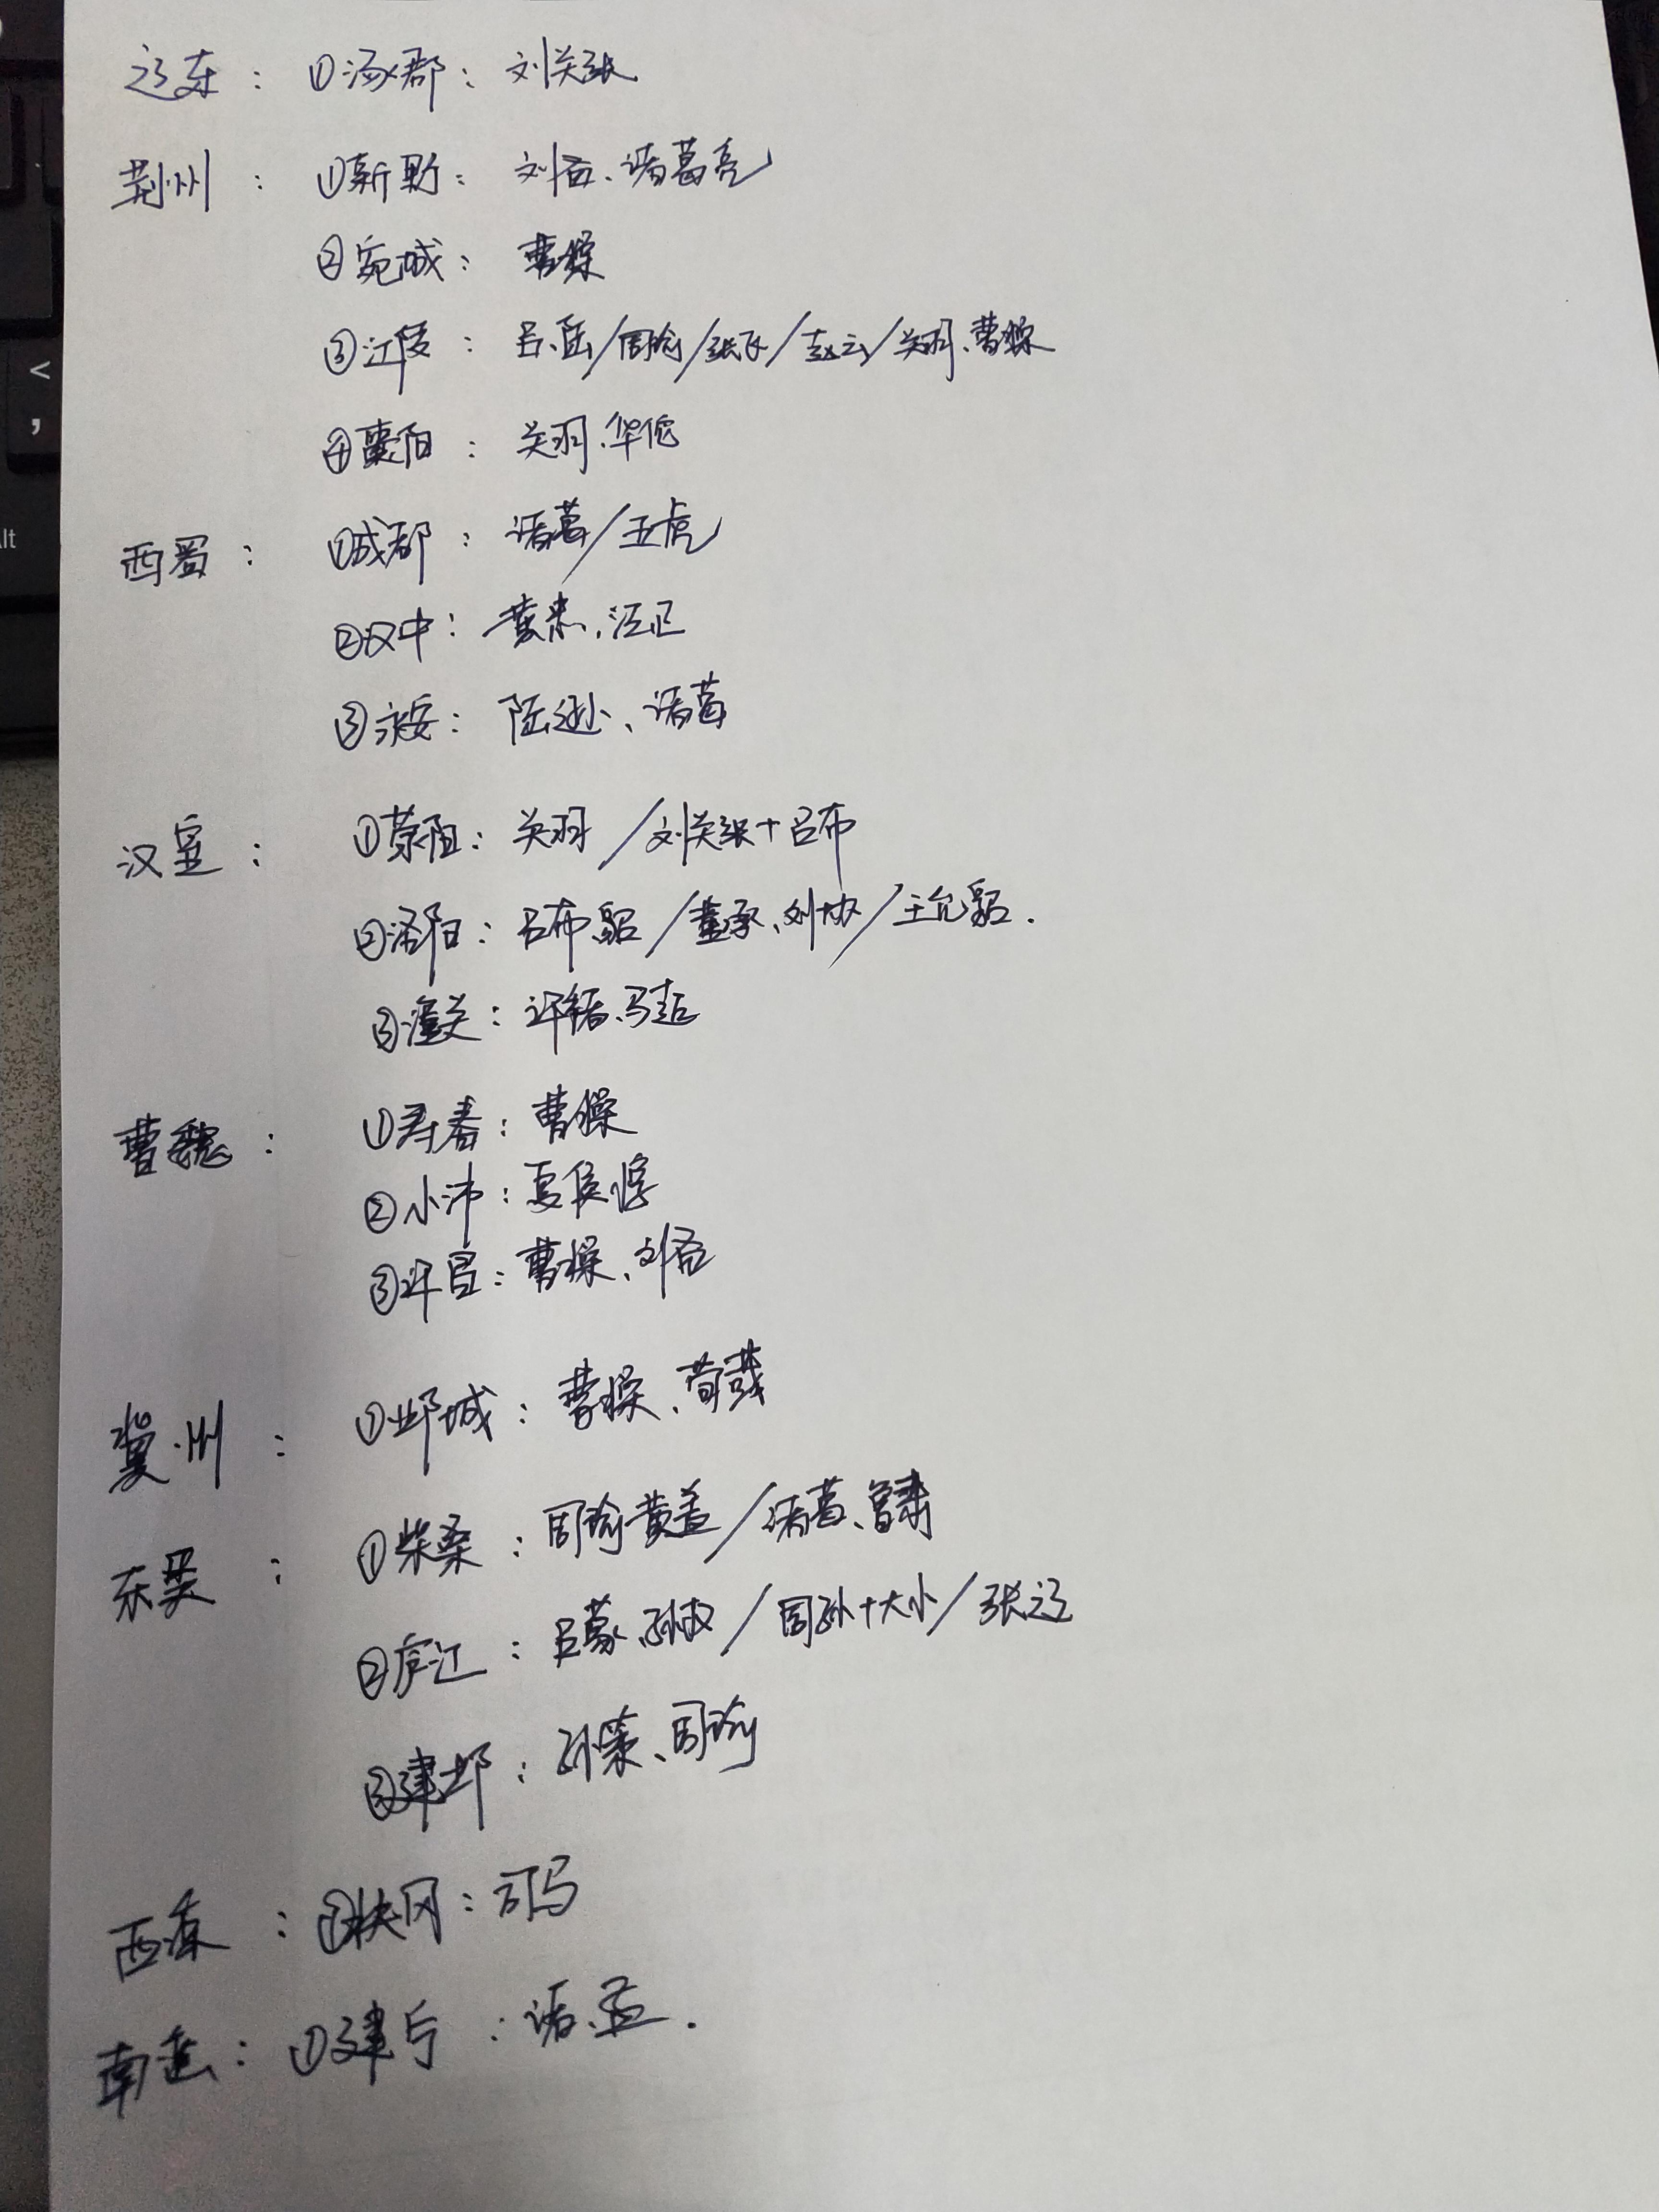 辽东： ①涿郡： 刘关张
荆州： ①新野： 刘备、诸葛亮
②宛城： 曹操
③江陵： 吕、陆/周瑜/张飞/赵云/关羽、曹操
④襄阳： 关羽、华佗
西蜀： ①成都： 诸葛/五虎
②汉中： 黄忠、法正
③永安： 陆逊、诸葛
汉室： ①荥阳： 关羽/刘关张+吕布
②洛阳： 吕布、貂/董承、刘协/王允、貂.
③潼关： 许褚、马超
曹魏： ①寿春： 曹操
②小沛： 夏侯惇
③许昌： 曹操、刘备
冀州： ①邺城： 曹操、荀彧
东吴： ①柴桑： 周瑜黄盖/诸葛、鲁肃
②庐江： 吕蒙、孙权/周孙+大小/张辽
③建邺： 孙策、周瑜
西凉： ①： 司马
南蛮： ①建宁： 诸、孟.